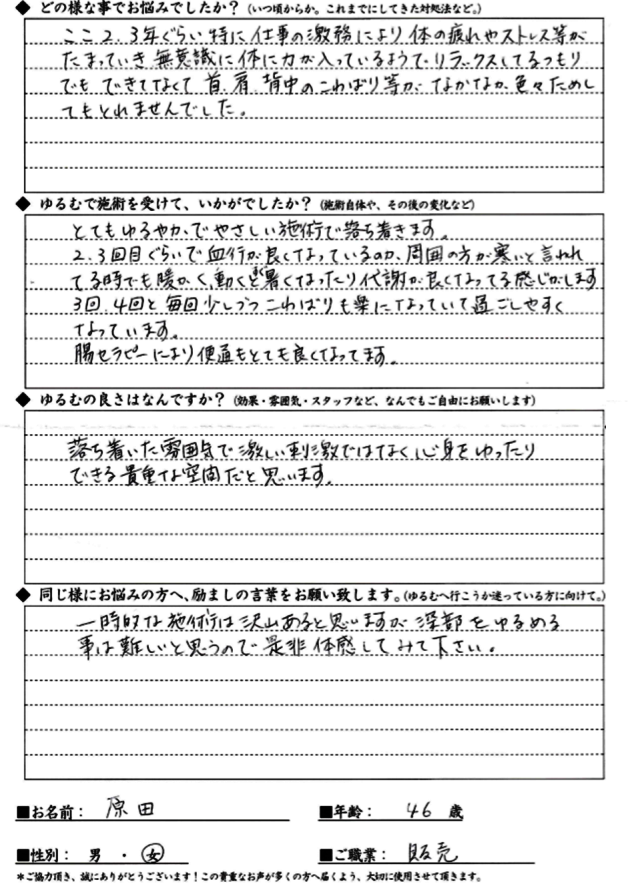 ◆ どの様な事でお悩みでしたか？（いつ頃からか。これまでにしてきた対処法など。）
ここ2、3年ぐらい特に仕事の激務により体の疲れやストレス等が
たまっていき無意識に体に力が入っているようで、リラックスしてるつもり
でもできてなくて首、肩、背中のこわばり等がなかなか色々ためし
てもとれませんでした。
◆ ゆるむで施術を受けて、いかがでしたか？（施術自体や、その後の変化など）
とてもゆるやかでやさしい施術で落ち着きます。
2、3回目ぐらいで血行が良くなっているのか、周囲の方が寒いと言われ
てる時でも暖かく、動くと暑くなったり代謝が良くなってる感じがします
3回、4回と毎回少しづつこわばりも楽になっていて過ごしやすく
なっています。
腸セラピーにより便通もとても良くなってます。
◆ ゆるむの良さはなんですか？（効果・雰囲気・スタッフなど、なんでもご自由にお願いします）
落ち着いた雰囲気で激しい刺激ではなく心身をゆったり
できる貴重な空間だと思います。
◆ 同じ様にお悩みの方へ、励ましの言葉をお願い致します。（ゆるむへ行こうか迷っている方に向けて。）
一時的な施術は沢山あると思いますが深部をゆるめる
事は難しいと思うので是非体感してみて下さい。
■お名前： 原田 ■年齢： 46 歳
■性別： 男 ・ 女 ■ご職業： 販売
＊ご協力頂き、誠にありがとうございます！この貴重なお声が多くの方へ届くよう、大切に使用させて頂きます。